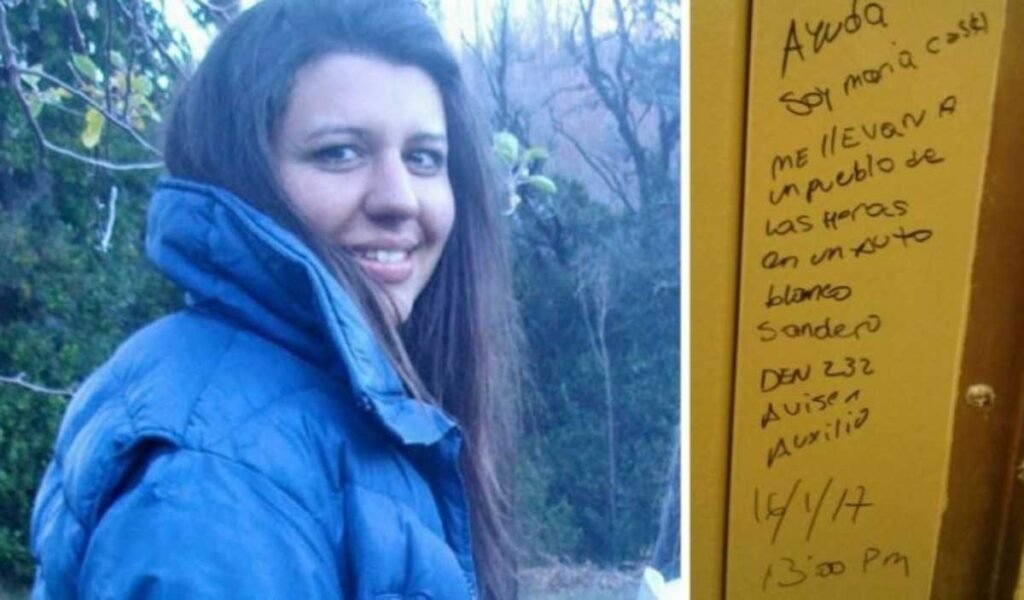 Ayuda
Soy maria
ME llEVan A
un pueblo de
Las Heras
en un AUTO
blanco
Sandero
DEN 232
Avisen
Auxilio
16/1/17
13:00 Pm